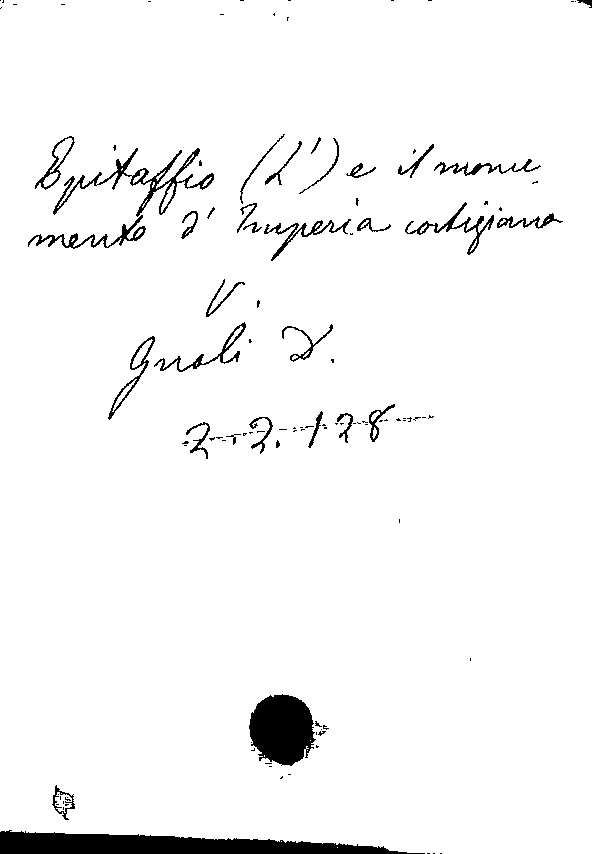 Epitaffio (L') e il monu
mento d' Imperia cortigiana
V.
Gnoli D.
2.2.128